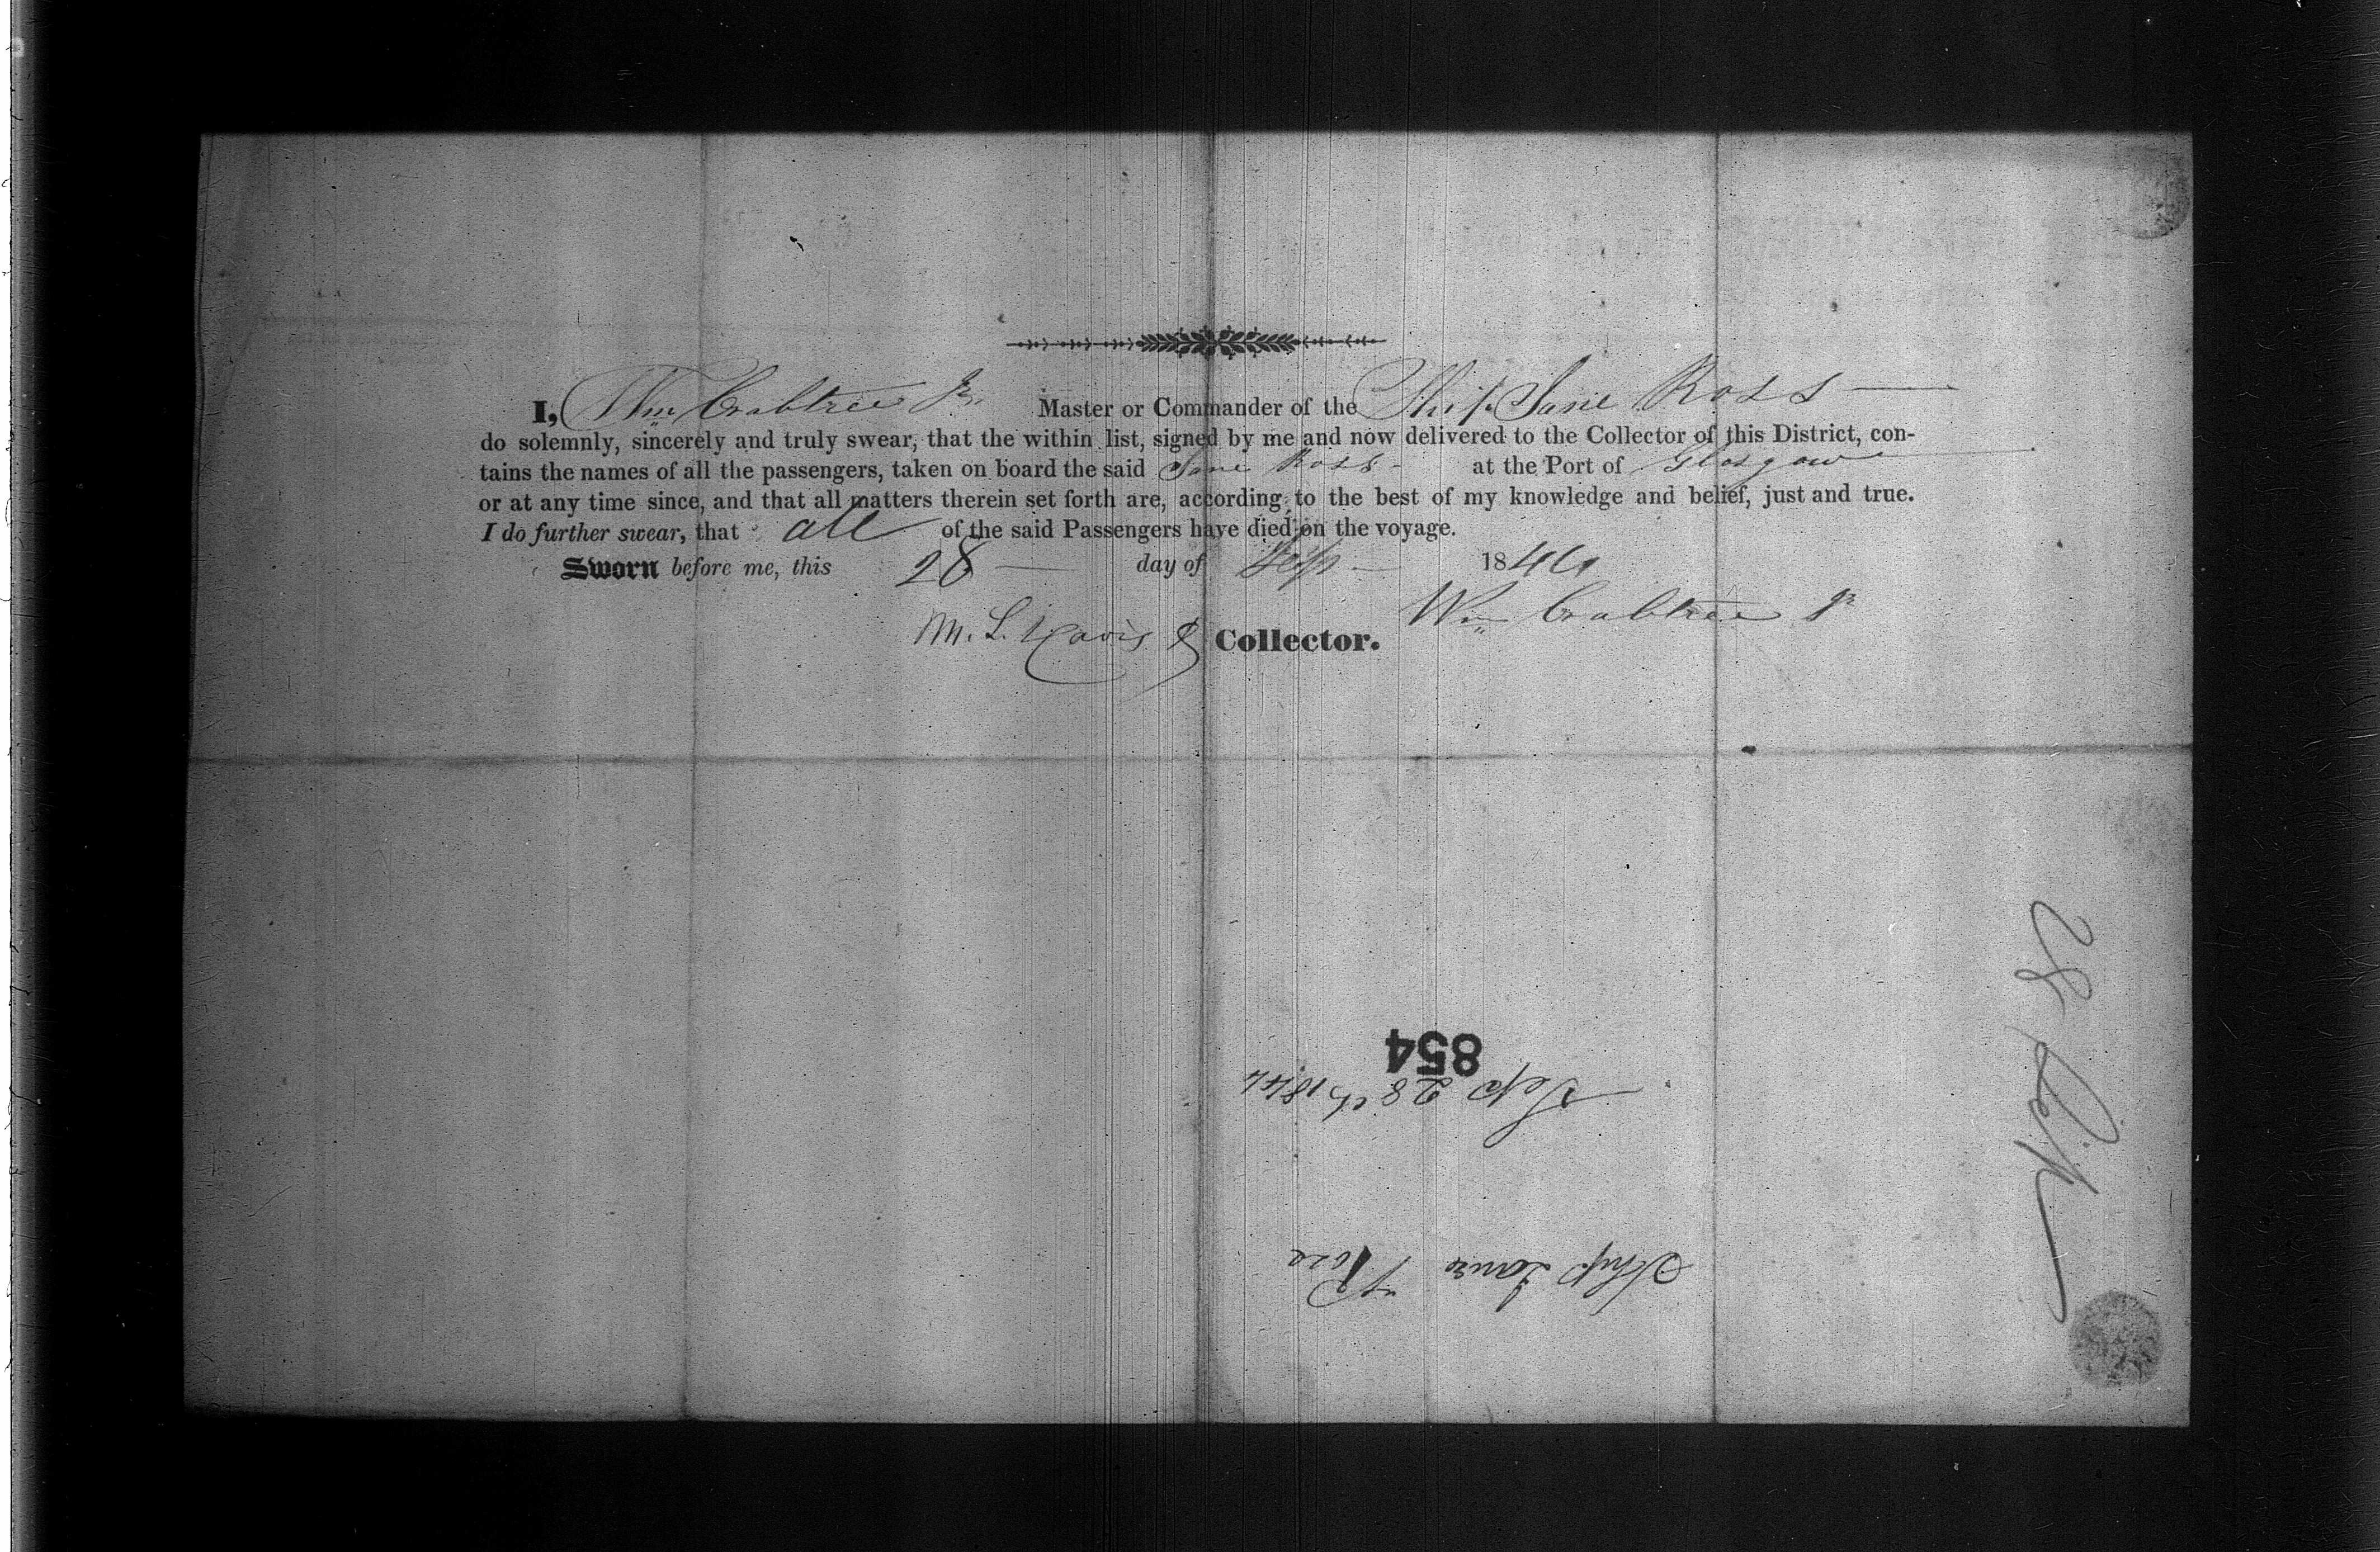 I, Wm Crabtree Jr. Master or Commander of the Ship Jane Ross
do solemnly, sincerely and truly swear, that the within list, signed by me and now delivered to the Collector of this District, con-
tains the names of all the passengers, taken on board the said Jane Ross - at the Port of Glasgow
or at any time since, and that all matters therein set forth are, according to the best of my knowledge and belief, just and true.
I do further swear, that all of the said Passengers have died on the voyage.
Sworn before me, this 28 day of Sep 1844
Wm Crabtree Jr
M. L. Davis Collector.
28 Sept
854
Sep 28th 1844
Ship Jane Ross